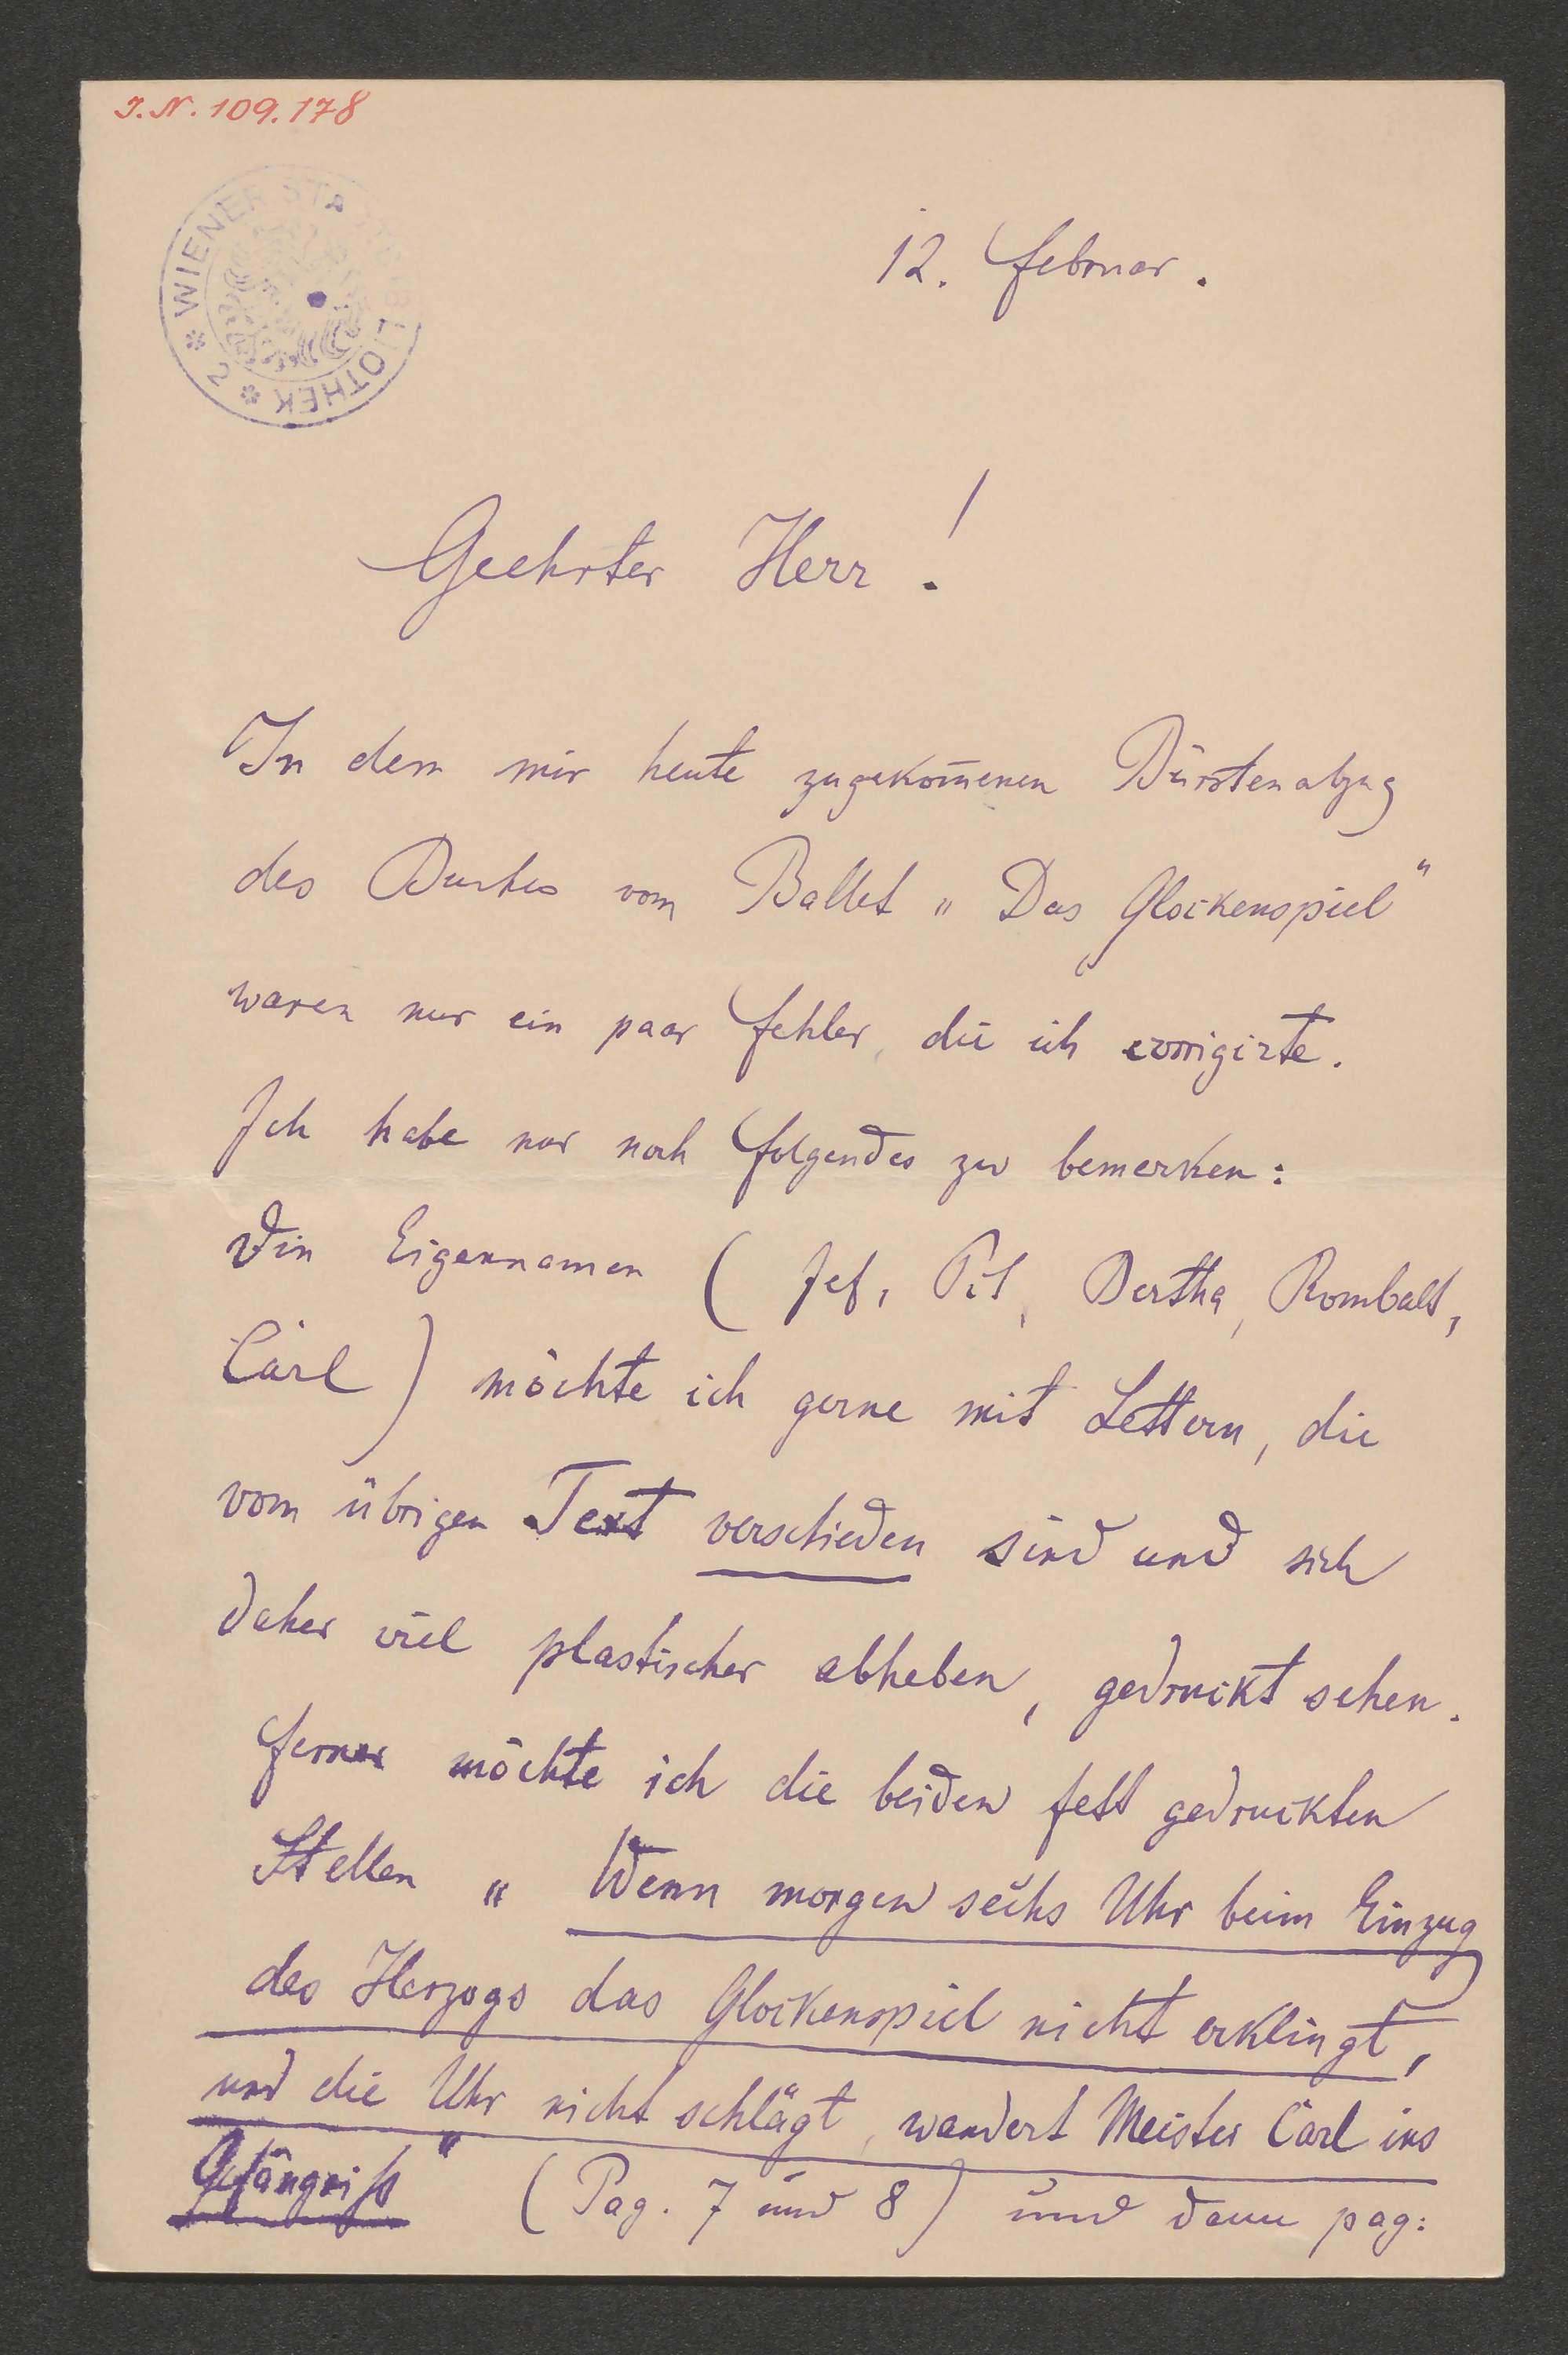 I.N. 109.178
WIENER STADTBIBLIOTHEK * 2 *
12. Februar.
Geehrter Herr!
In dem mir heute zugekom̄enen Bürstenabzug
des Buches vom Ballet „Das Glockenspiel“
waren nur ein paar Fehler, die ich corrigirte.
Ich habe nur noch folgendes zu bemerken:
Die Eigennamen (Jef, Pit, Bertha, Rombalt,
Carl) möchte ich gerne mit Lettern, die
vom übrigen Text verschieden sind und sich
daher viel plastischer abheben, gedruckt sehen.
Ferner möchte ich die beiden fett gedruckten
Stellen „Wenn morgen sechs Uhr beim Einzug
des Herzogs das Glockenspiel nicht erklingt,
und die Uhr nicht schlägt, wandert Meister Carl ins
Gefängniß“ (Pag. 7 und 8) und dann pag: